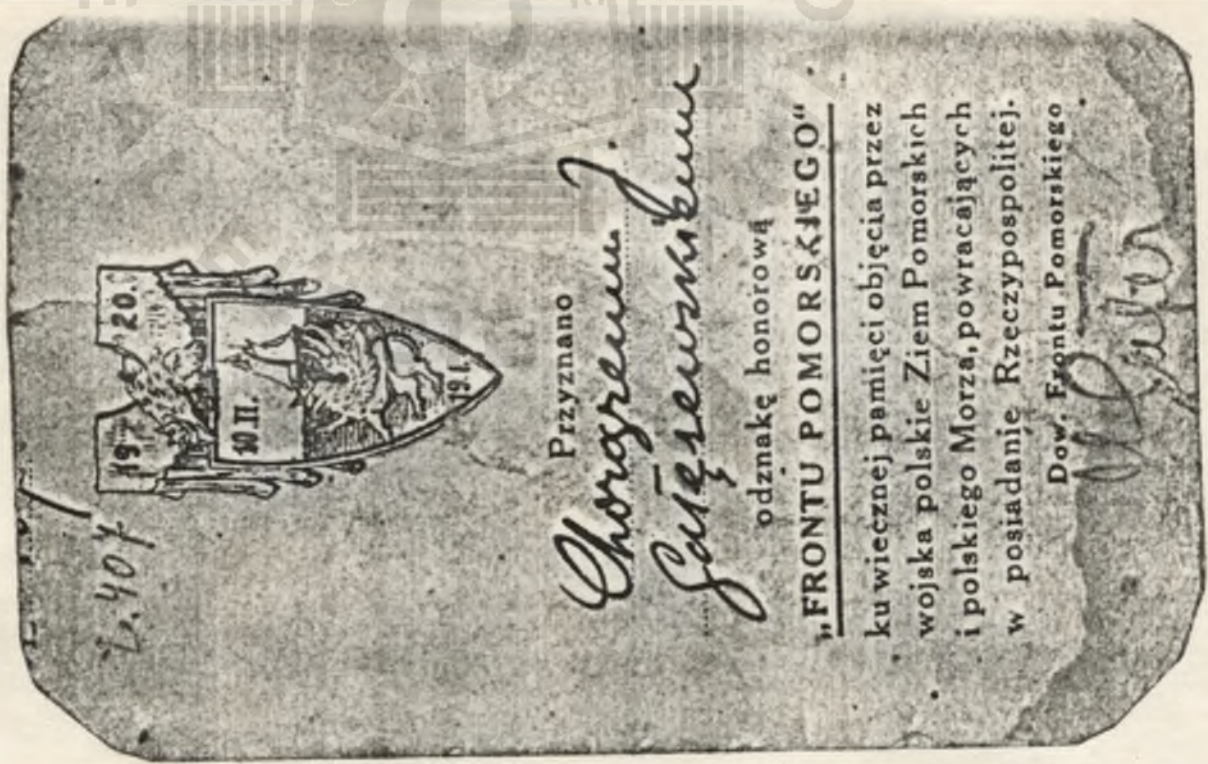 L. 407
19 20.
10 II.
19.I.
Przyznano
Chorążemu J.
odznakę honorową
„FRONTU POMORSKIEGO“
ku wiecznej pamięci objęcia przez
wojska polskie Ziem Pomorskich
i polskiego Morza, powracających
w posiadanie Rzeczypospolitej.
Dow. Frontu Pomorskiego